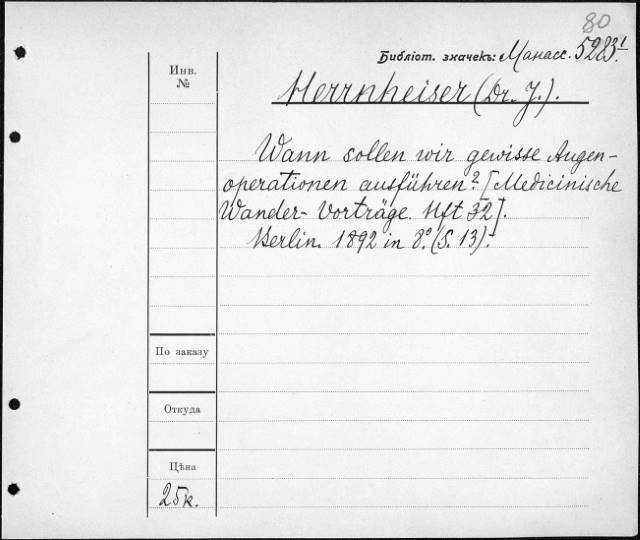 80
Библіот. значекъ: Манасс. 5283¹.
Инв.
№
Herrnheiser (Dr. J.).
Wann sollen wir gewisse Augen-
operationen ausführen? [Medicinische
Wander-Vorträge. Hft 32].
Berlin. 1892 in 8°. (S. 13).
По заказу
Откуда
Цѣна
25к.